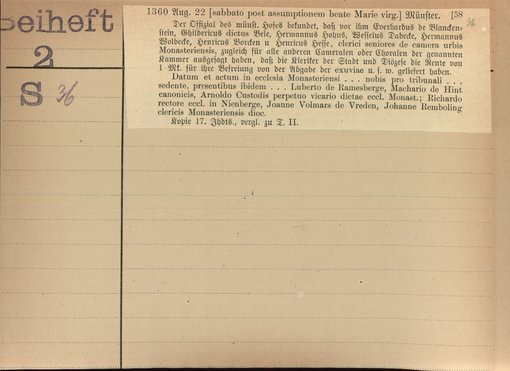 Beiheft
2
S 36
1360 Aug. 22 [sabbato post assumptionem beate Marie virg.] Münster. [58
36
Der Offizial des münst. Hofes bekundet, daß vor ihm Everhardus de Blanckenstein, Childericus dictus Bele, Hermannus Hohus, Wesselus Dabecke, Hermannus
Wolbecke, Henricus Borcken u Henricus Hesse, clerici seniores de camera urbis
Monasteriensis, zugleich für alle anderen Cameralen oder Choralen der genannten
Kammer ausgesagt haben, daß die Kleriker der Stadt und Diözese die Rente von
1 Mk. für ihre Befreiung von der Abgabe der exuviae u. s. w. geliefert haben.
Datum et actum in ecclesia Monasteriensi . . . nobis pro tribunali . . .
sedente, presentibus ibidem . . . Luberto de Ramesberge, Machario de Hint
canonicis, Arnoldo Custodis perpetuo vicario dictae eccl. Monast.; Richardo
rectore eccl. in Nienberge, Joanne Volmars de Vreden, Johanne Remboling
clericis Monasteriensis dioc.
Kopie 17. Jhdts., vergl. zu T. II.